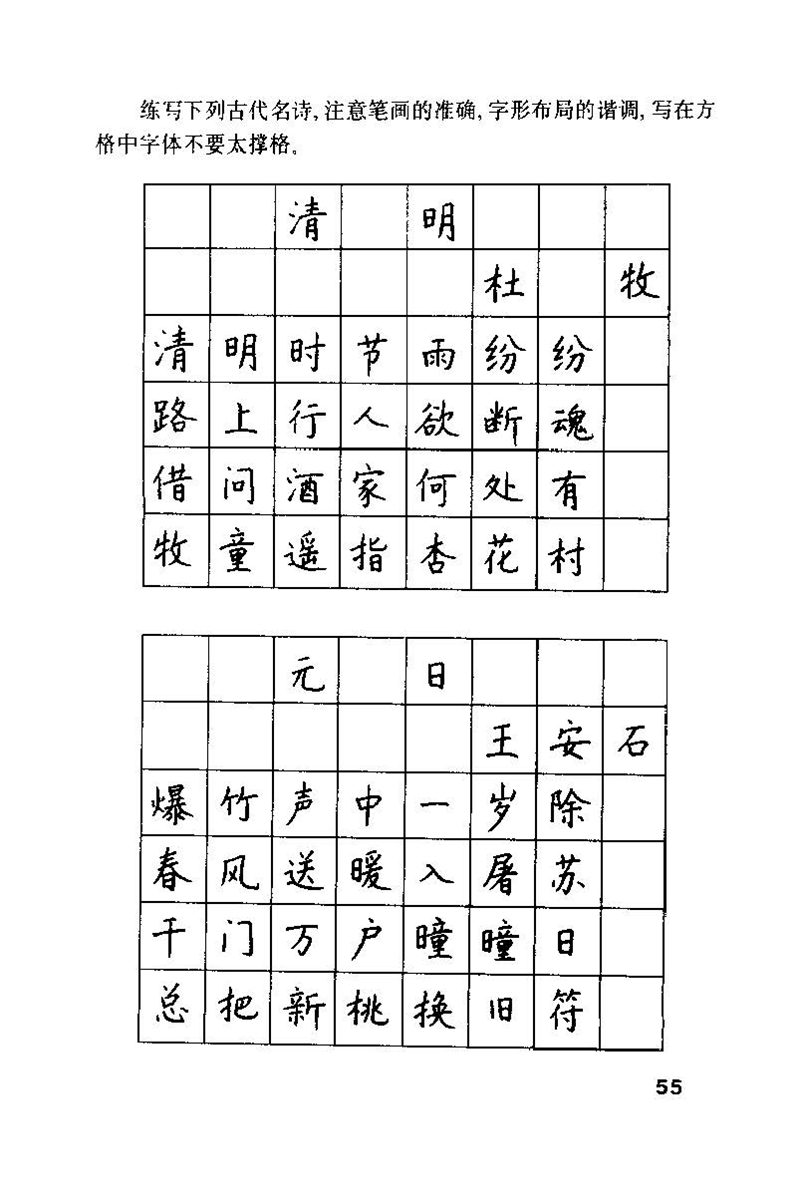 练写下列古代名诗,注意笔画的准确,字形布局的谐调,写在方
格中字体不要太撑格。
清明
杜牧
清明时节雨纷纷
路上行人欲断魂
借问酒家何处有
牧童遥指杏花村
元日
王安石
爆竹声中一岁除
春风送暖入屠苏
千门万户曈曈日
总把新桃换旧符
55